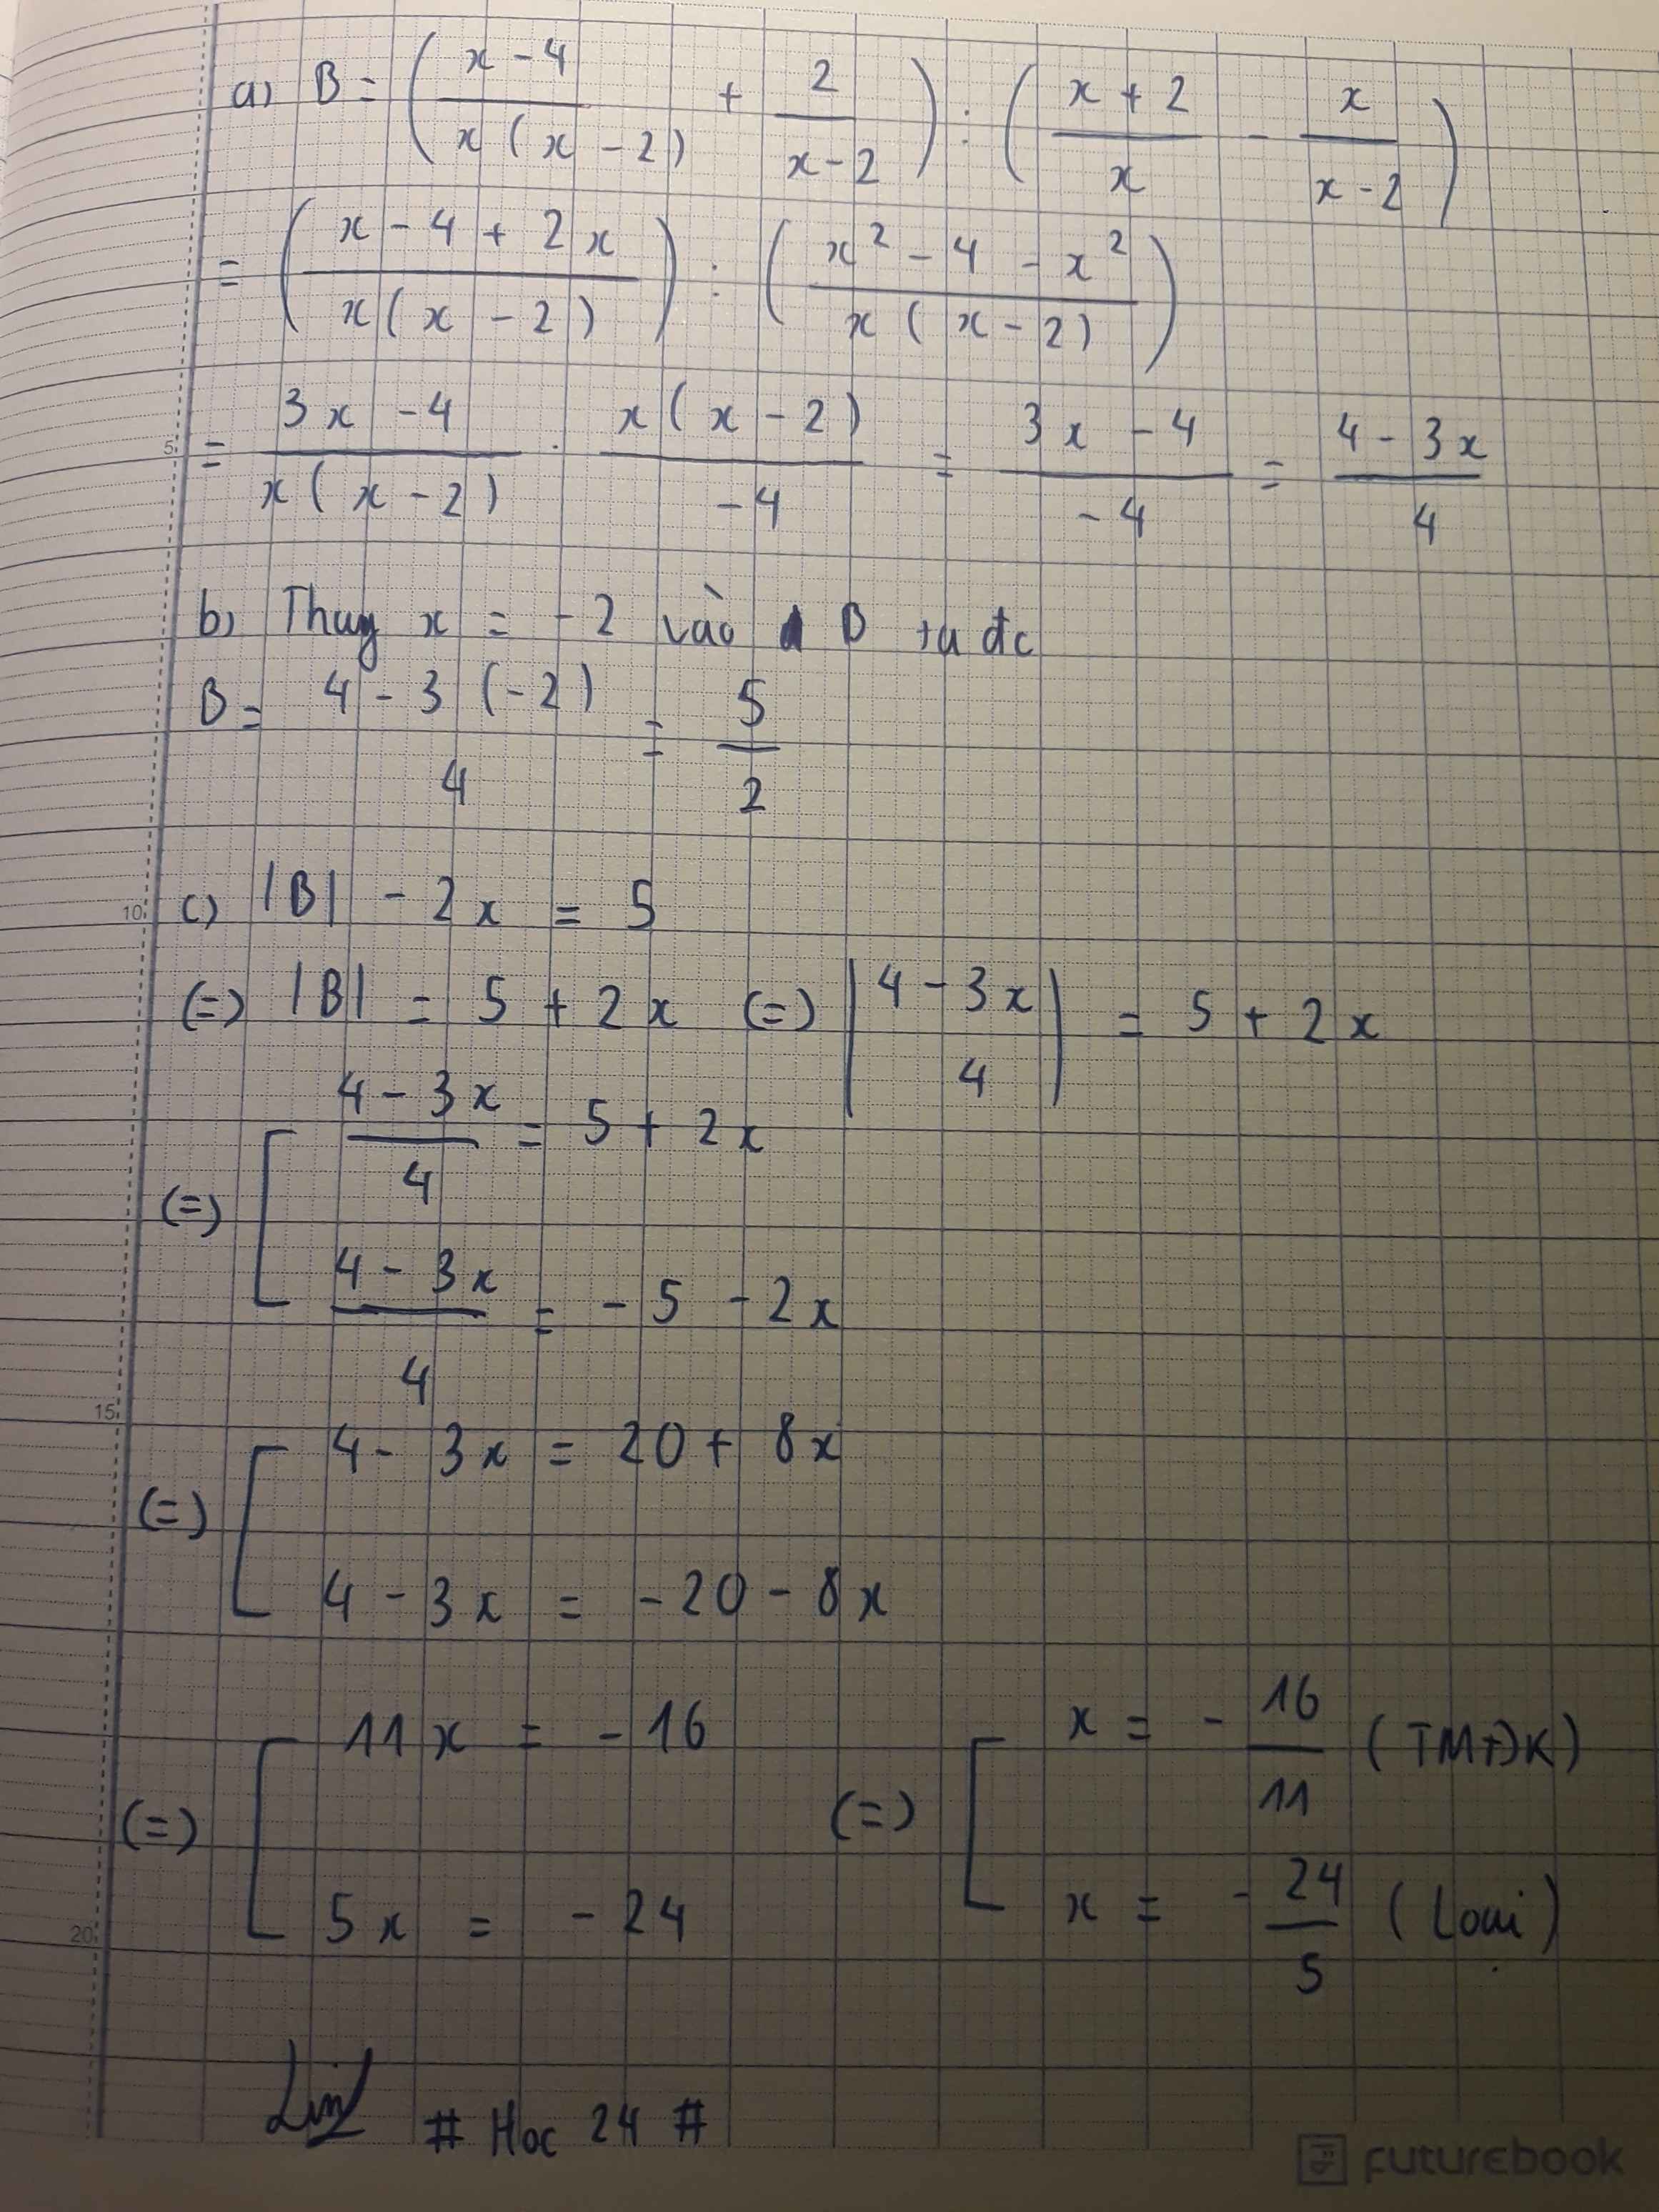 a) B = ( (x - 4)/(x(x - 2)) + 2/(x - 2) ) : ( (x + 2)/x - x/(x - 2) )
= ( (x - 4 + 2x)/(x(x - 2)) ) : ( (x² - 4 - x²)/(x(x - 2)) )
5 = (3x - 4)/(x(x - 2)) . (x(x - 2))/(-4) = (3x - 4)/(-4) = (4 - 3x)/4
b) Thay x = -2 vào B ta đc
B = (4 - 3(-2))/4 = 5/2
10 c) |B| - 2x = 5
(=) |B| = 5 + 2x (=) |(4 - 3x)/4| = 5 + 2x
(=) [ (4 - 3x)/4 = 5 + 2x
(4 - 3x)/4 = -5 - 2x
15
(=) [ 4 - 3x = 20 + 8x
4 - 3x = -20 - 8x
(=) [ 11x = -16 (=) [ x = -16/11 (TMĐK)
20 5x = -24 x = -24/5 (Loại)
# Hoc 24 #
futurebook